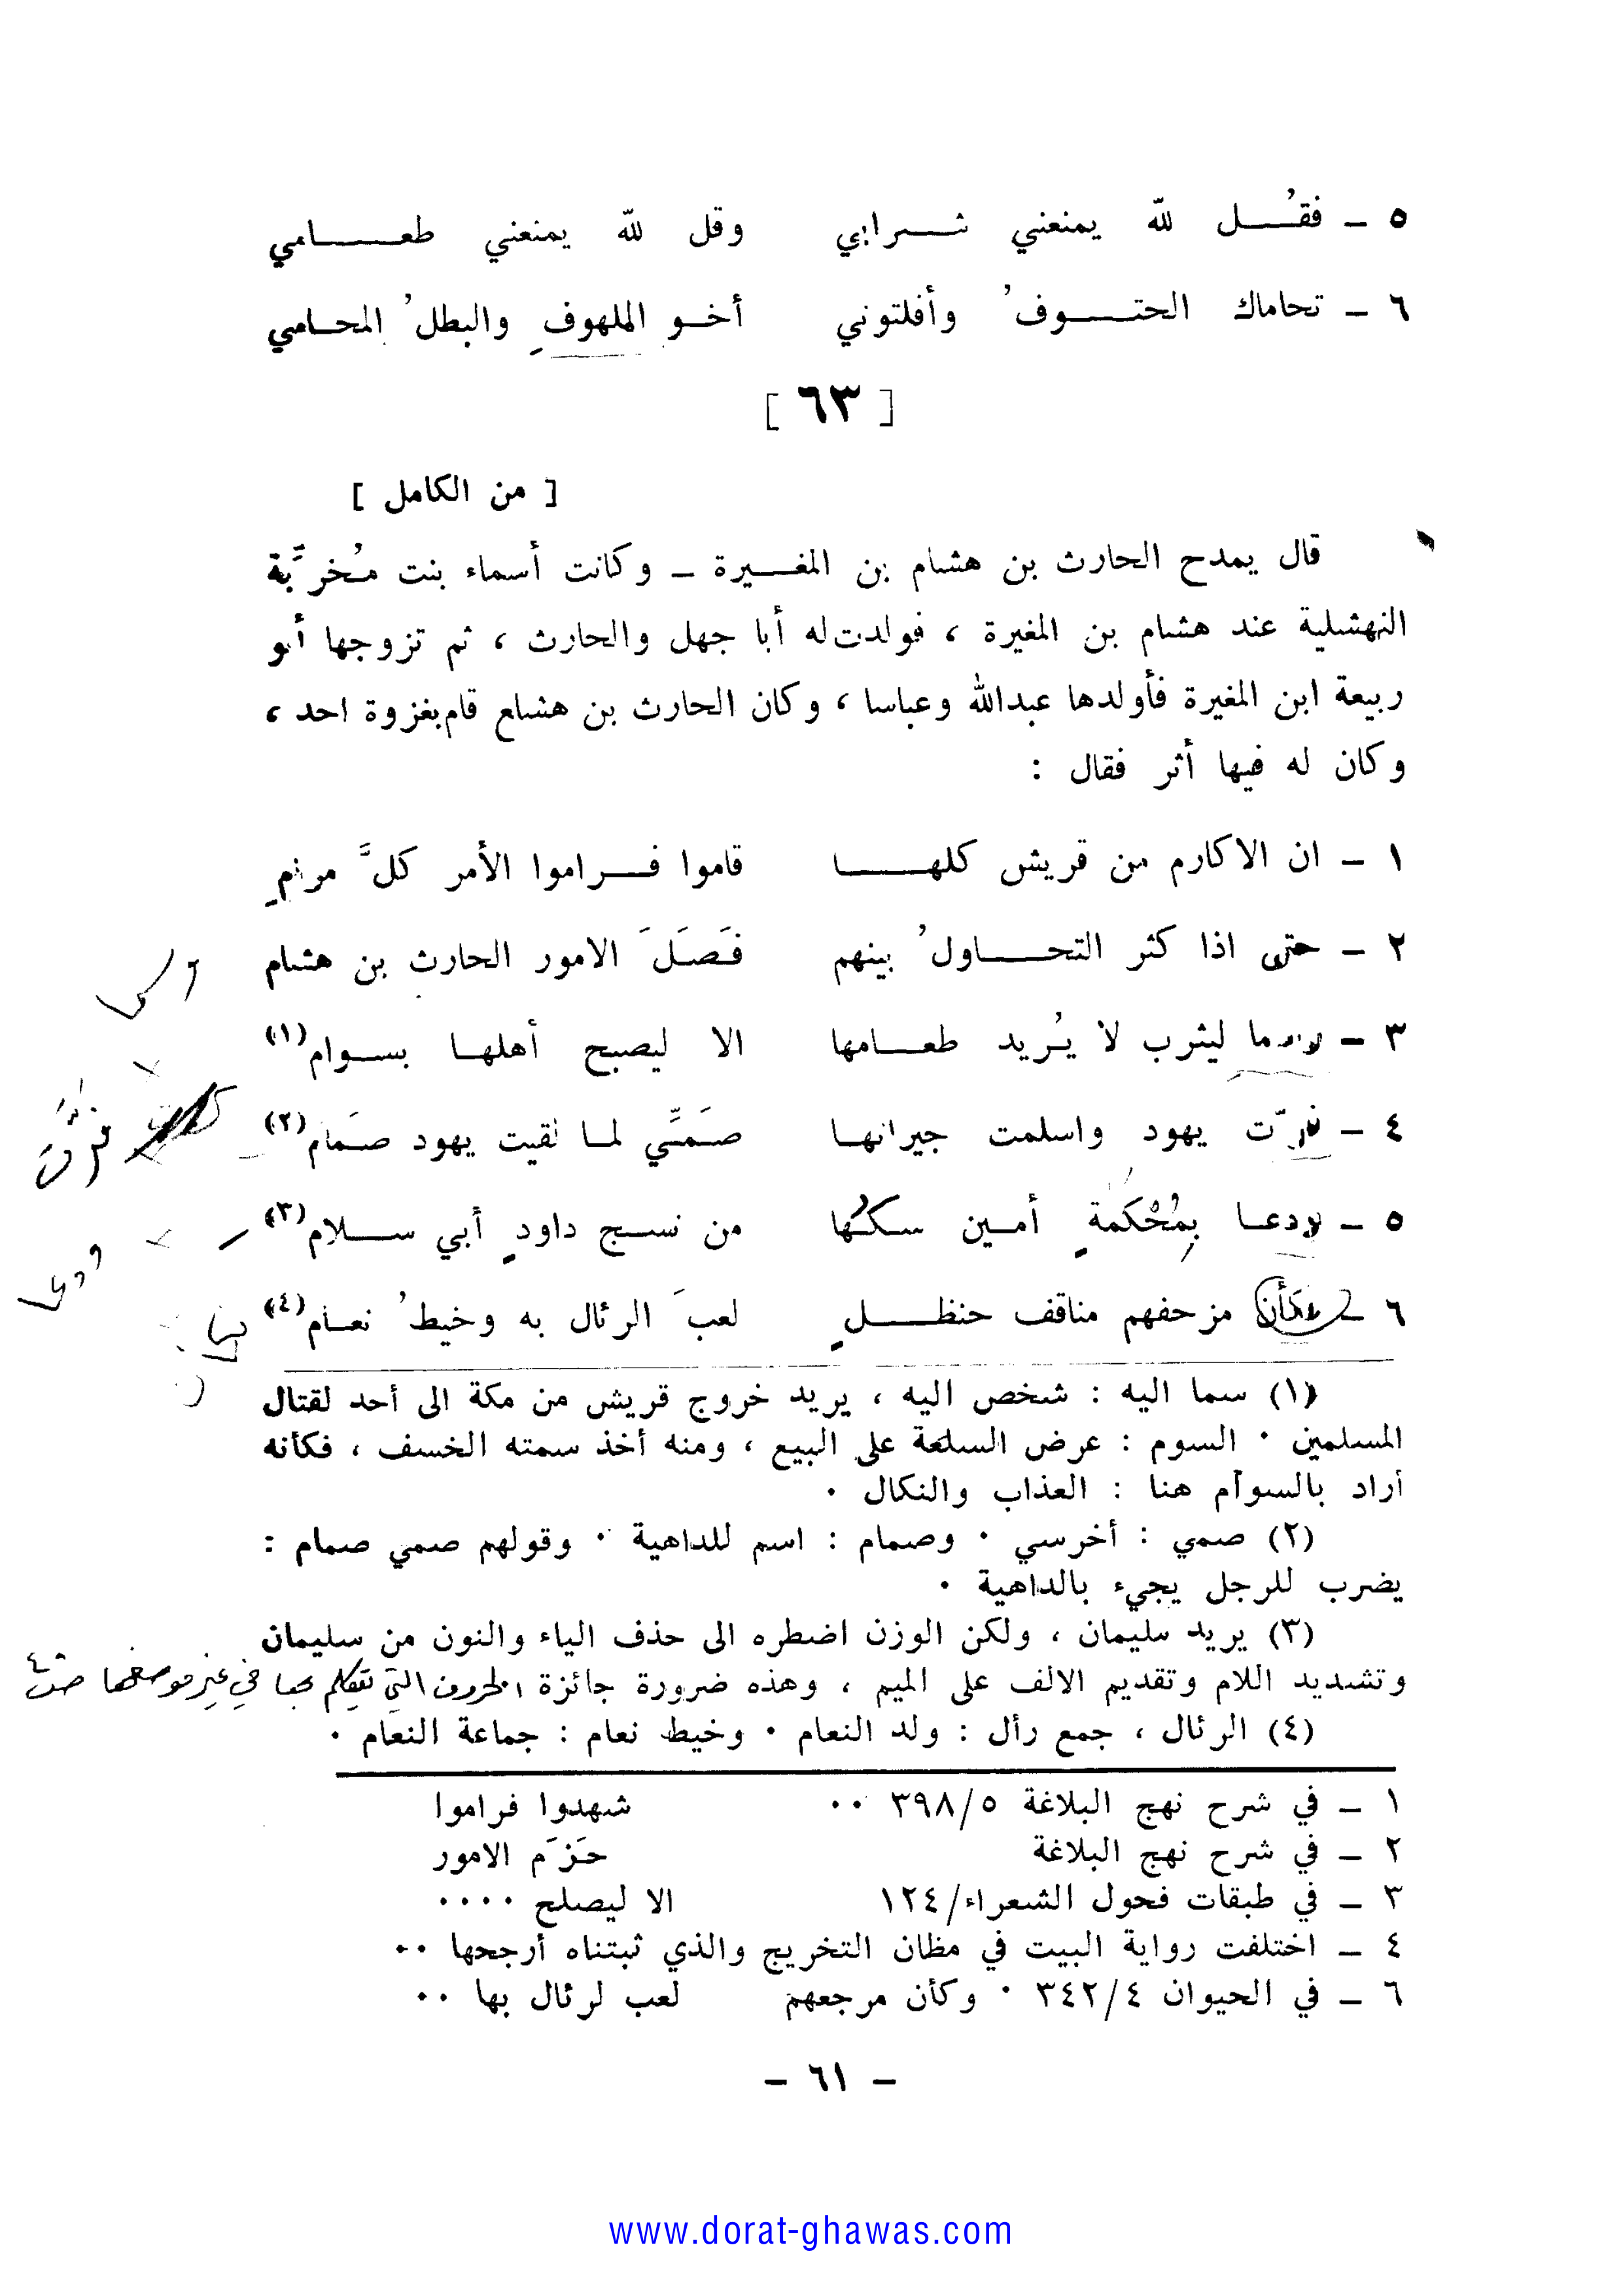 ٥ ــ فقُــل لله يمنعني شــرابي وقل لله يمنعني طعــامي
٦ ــ تحاماك الحتــوفُ وأفلتوني أخــو الملهوفِ والبطلُ المحــامي
[ ٦٣ ]
[ من الكامل ]
قال يمدح الحارث بن هشام بن المغــيرة ــ وكانت أسماء بنت مُخرِّبة
النهشلية عند هشام بن المغيرة ، فولدت له أبا جهل والحارث ، ثم تزوجها أبو
ربيعة ابن المغيرة فأولدها عبدالله وعباسا ، وكان الحارث بن هشاع قام بغزوة احد ،
وكان له فيها أثر فقال :
١ ــ ان الاكارم من قريش كلهــا قاموا فــراموا الأمر كلَّ مرامِ
٢ ــ حتى اذا كثر التحــاولُ بينهم فَصَلَ الامور الحارث بن هشام
٣ ــ ليثرب لا يُريد طعــامها الا ليصبح أهلهــا بســوام(١)
٤ ــ يهود واسلمت جيرانهــا صَمِّي لمــا لقيت يهود صَمام(٢)
٥ ــ ودعــا بِمُحْكَمةٍ أمــين سككُها من نســج داودٍ أبي ســلام(٣)
٦ ــ مزحفهم مناقف حنظــلٍ لعبَ الرئال به وخيطُ نعــام(٤)
فرّت
ودعا
(١) سما اليه : شخص اليه ، يريد خروج قريش من مكة الى أحد لقتال
المسلمين ٠ السوم : عرض السلعة على البيع ، ومنه أخذ سمته الخسف ، فكأنه
أراد بالسوآم هنا : العذاب والنكال ٠
(٢) صمي : أخرسي ٠ وصمام : اسم للداهية ٠ وقولهم صمي صمام :
يضرب للرجل يجيء بالداهية ٠
(٣) يريد سليمان ، ولكن الوزن اضطره الى حذف الياء والنون من سليمان
وتشديد اللام وتقديم الالف على الميم ، وهذه ضرورة جائزة
(٤) الرئال ، جمع رأل : ولد النعام ٠ وخيط نعام : جماعة النعام ٠
١ ــ في شرح نهج البلاغة ٣٩٨/٥ ٠٠ شهدوا فراموا
٢ ــ في شرح نهج البلاغة حَزَم الامور
٣ ــ في طبقات فحول الشعراء/١٢٤ الا ليصلح ٠٠٠٠
٤ ــ اختلفت رواية البيت في مظان التخريج والذي ثبتناه أرجحها ٠٠
٦ ــ في الحيوان ٣٤٢/٤ ٠ وكأن مرجعهم لعب لرئال بها ٠٠
ــ ٦١ ــ
www.dorat-ghawas.com